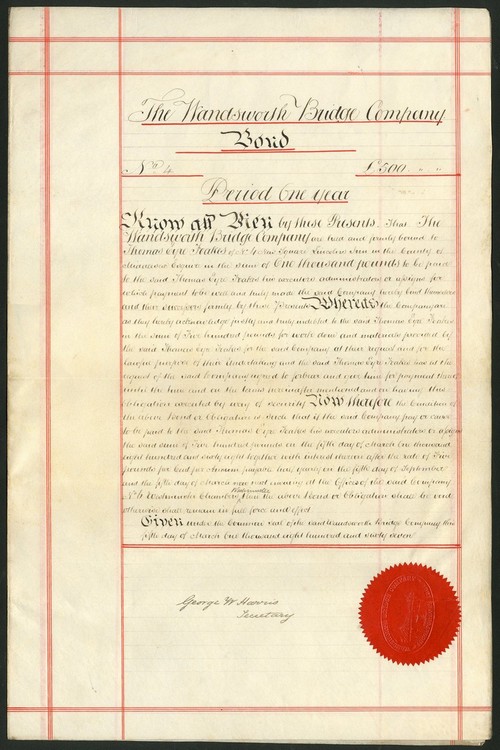 The Wandsworth Bridge Company
Bond
No. 4. £500 " "
Period One year
Know all Men by these Presents That The
Wandsworth Bridge Company are held and firmly bound to
Thomas Eyre Foakes of No. New Square Lincolns Inn in the County of
Esquire in the sum of One thousand pounds to be paid
to the said Thomas Eyre Foakes his executors administrators or assigns for
which payment to be well and truly made the said Company hereby bind themselves
and their successors firmly by these Presents Whereas the Company are
as they hereby acknowledge justly and truly indebted to the said Thomas Eyre Foakes
in the sum of Five hundred Pounds for work done and materials provided by
the said Thomas Eyre Foakes for the said Company at their request and for the
purpose of their Undertaking and the said Thomas Eyre Foakes has at the
request of the said Company agreed to forbear and give time for payment thereof
until the time and on the terms hereinafter mentioned and on having this
Obligation executed by way of security Now therefore the Condition of
the above Bond or Obligation is such that if the said Company pay or cause
to be paid to the said Thomas Eyre Foakes his executors administrators or assigns
the said sum of Five hundred pounds on the fifth day of March One thousand
eight hundred and sixty eight together with interest thereon after the rate of Five
pounds per Cent per Annum payable half yearly on the fifth day of September
and the fifth day of March now next ensuing at the Offices of the said Company
No. 4 Westminster Chambers Westminster then the above Bond or Obligation shall be void
otherwise shall remain in full force and effect
Given under the Common Seal of the said Wandsworth Bridge Company this
fifth day of March One thousand eight hundred and sixty seven
George W Harris
Secretary